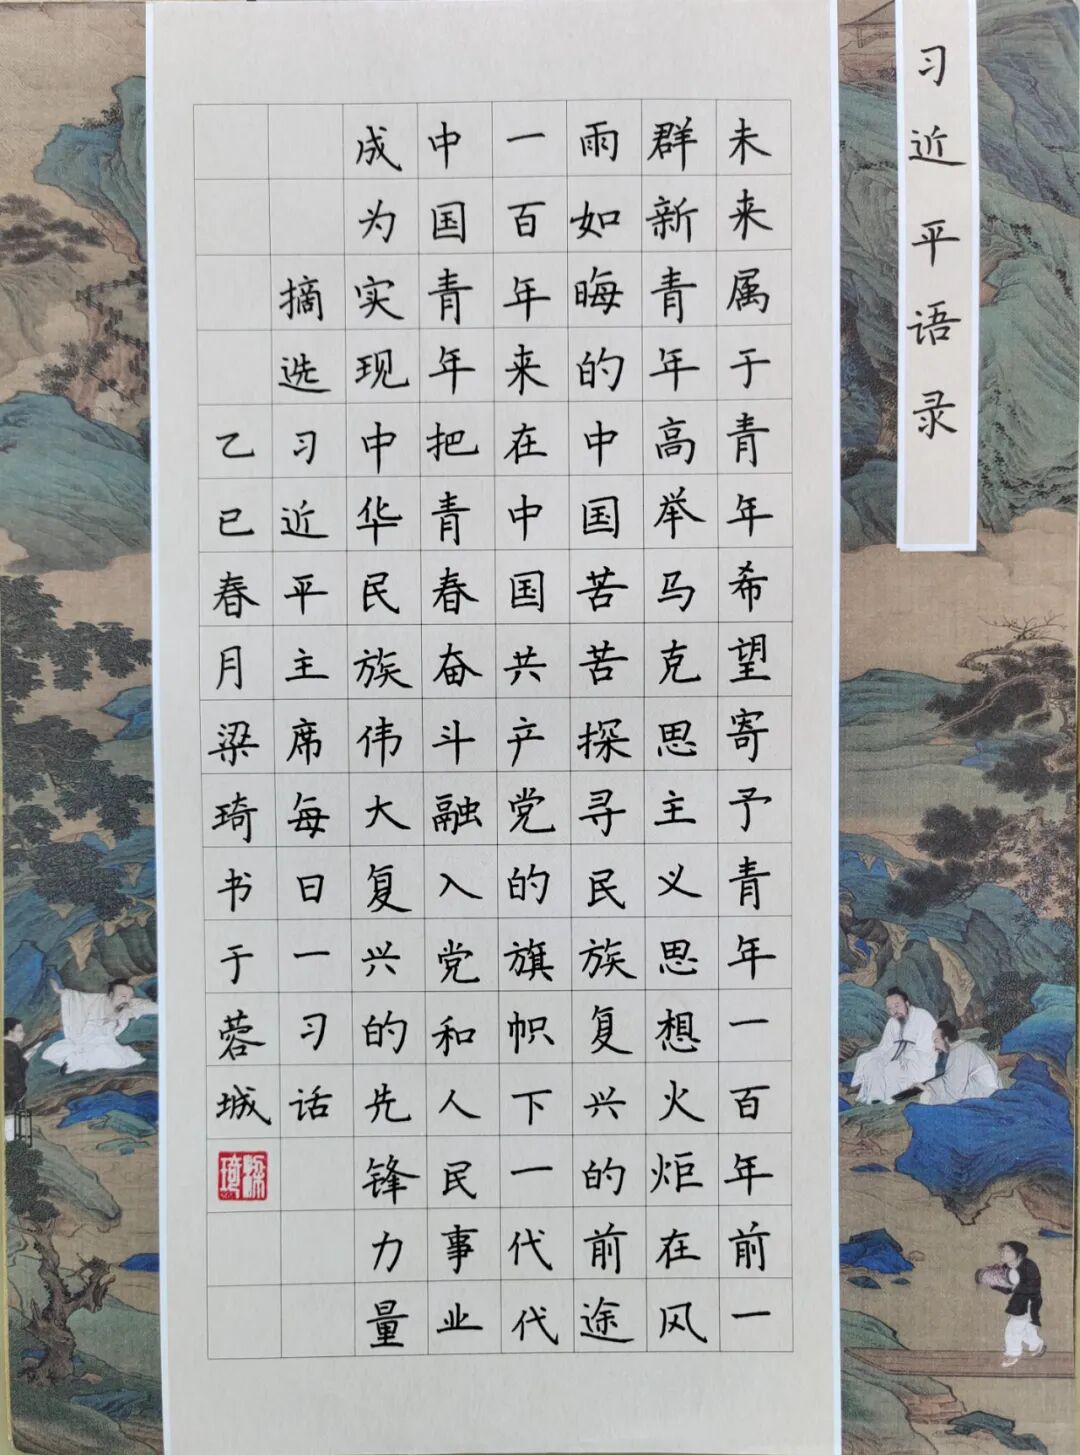 习近平语录
未来属于青年希望寄予青年一百年前一
群新青年高举马克思主义思想火炬在风
雨如晦的中国苦苦探寻民族复兴的前途
一百年来在中国共产党的旗帜下一代代
中国青年把青春奋斗融入党和人民事业
成为实现中华民族伟大复兴的先锋力量
摘选习近平主席每日一习话
乙巳春月梁琦书于蓉城
梁琦